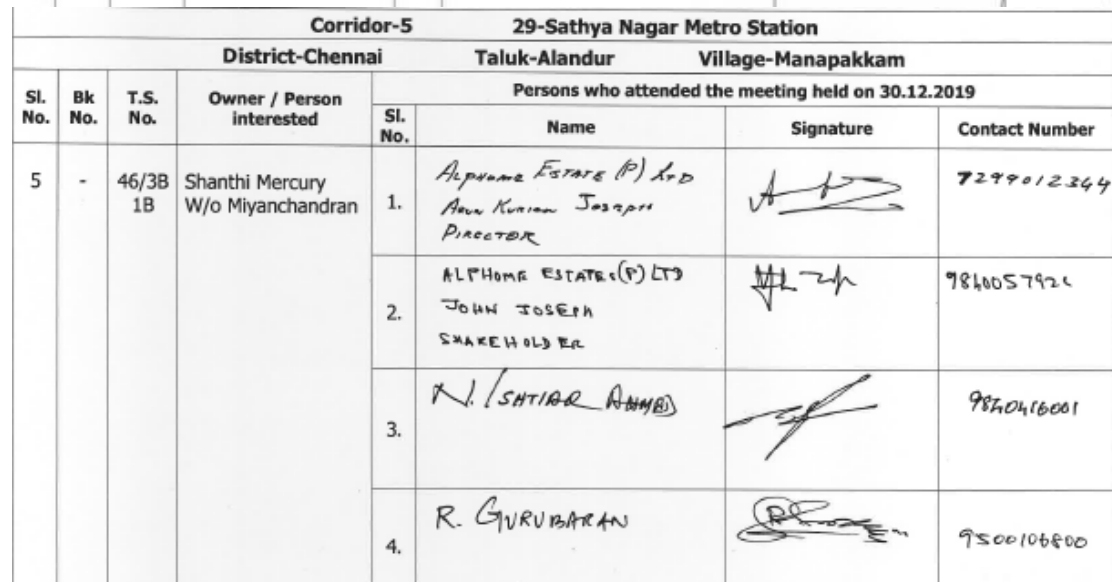 Corridor-5 29-Sathya Nagar Metro Station
District-Chennai Taluk-Alandur Village-Manapakkam
Sl. No. Bk No. T.S. No. Owner / Person interested Persons who attended the meeting held on 30.12.2019
Sl. No. Name Signature Contact Number
5 - 46/3B Shanthi Mercury
1B W/o Miyanchandran
1. ALPHOME ESTATE (P) LTD 7299012344
Arun Kurian Joseph
DIRECTOR
2. ALPHOME ESTATES(P) LTD
JOHN JOSEPH
SHAREHOLDER
3. N. ISHTIAQ AHMED 9840416001
4. R. GURUBARAN 9500106800